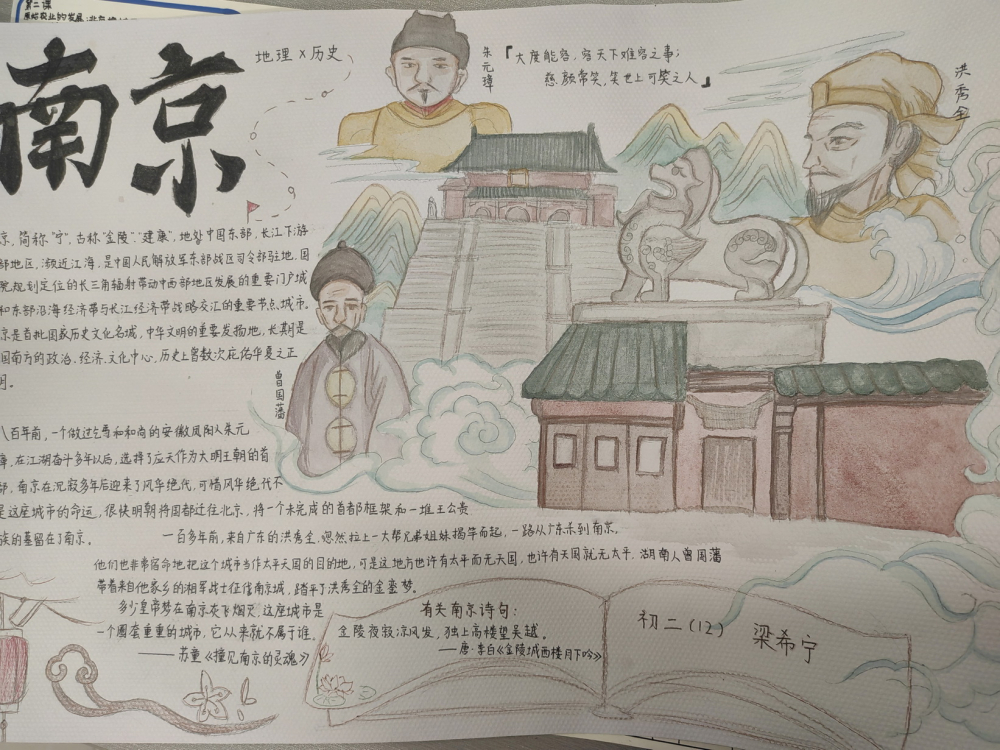 第二课
南京
地理 x 历史
朱元璋
『大度能容，容天下难容之事；
慈颜常笑，笑世上可笑之人』
洪秀全
京，简称"宁"，古称"金陵""建康"，地处中国东部，长江下游
部地区，濒近江海，是中国人民解放军东部战区司令部驻地，国
院规划定位的长三角辐射带动中西部地区发展的重要门户城
和东部沿海经济带与长江经济带战略交汇的重要节点城市。
京是首批国家历史文化名城，中华文明的重要发扬地，长期是
国南方的政治、经济、文化中心，历史上曾数次庇佑华夏之正
朔。
曾国藩
八百年前，一个做过乞丐和和尚的安徽凤阳人朱元
璋，在江湖奋斗多年以后，选择了应天作为大明王朝的首
都，南京在沉寂多年后迎来了风华绝代，可惜风华绝代不
是这座城市的命运，很快明朝将国都迁往北京，将一个未完成的首都框架和一堆王公贵
族的墓留在了南京。
一百多年前，来自广东的洪秀全，忽然拉上一大帮兄弟姐妹揭竿而起，一路从广东杀到南京。
他们也非常宿命地把这个城市当作太平天国的目的地，可是这地方也许有太平而无天国，也许有天国就无太平，湖南人曾国藩
带着来自他家乡的湘军战士征伐南京城，踏平了洪秀全的金銮梦。
多少皇帝梦在南京灰飞烟灭，这座城市是
一个圈套重重的城市，它从来就不属于谁。
——苏童《撞见南京的灵魂》
有关南京诗句：
金陵夜寂凉风发，独上高楼望吴越。
——唐·李白《金陵城西楼月下吟》
初二（12）
梁希宁